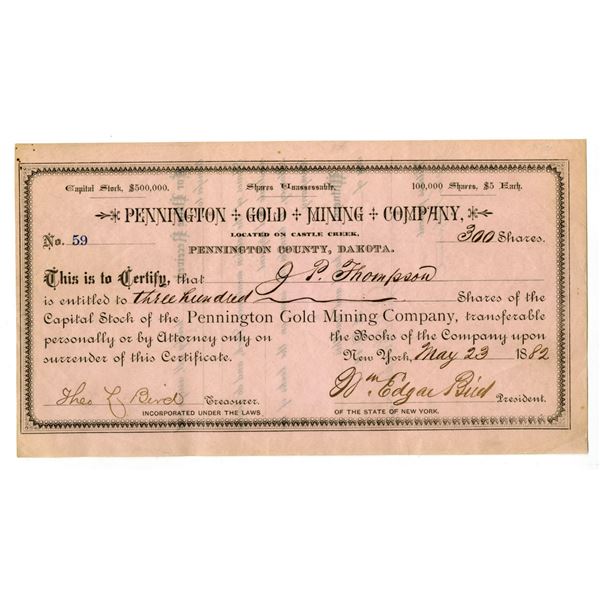 Capital Stock, $500,000. Shares Unassessable. 100,000 Shares, $5 Each.
PENNINGTON GOLD MINING COMPANY,
LOCATED ON CASTLE CREEK,
No. 59 300 Shares.
PENNINGTON COUNTY, DAKOTA.
This is to Certify, that J P. Thompson
is entitled to three hundred Shares of the
Capital Stock of the Pennington Gold Mining Company, transferable
personally or by Attorney only on the Books of the Company upon
surrender of this Certificate. New York, May 23 1882
Theo L Bird Treasurer. Wm. Edgar Bird President.
INCORPORATED UNDER THE LAWS OF THE STATE OF NEW YORK.